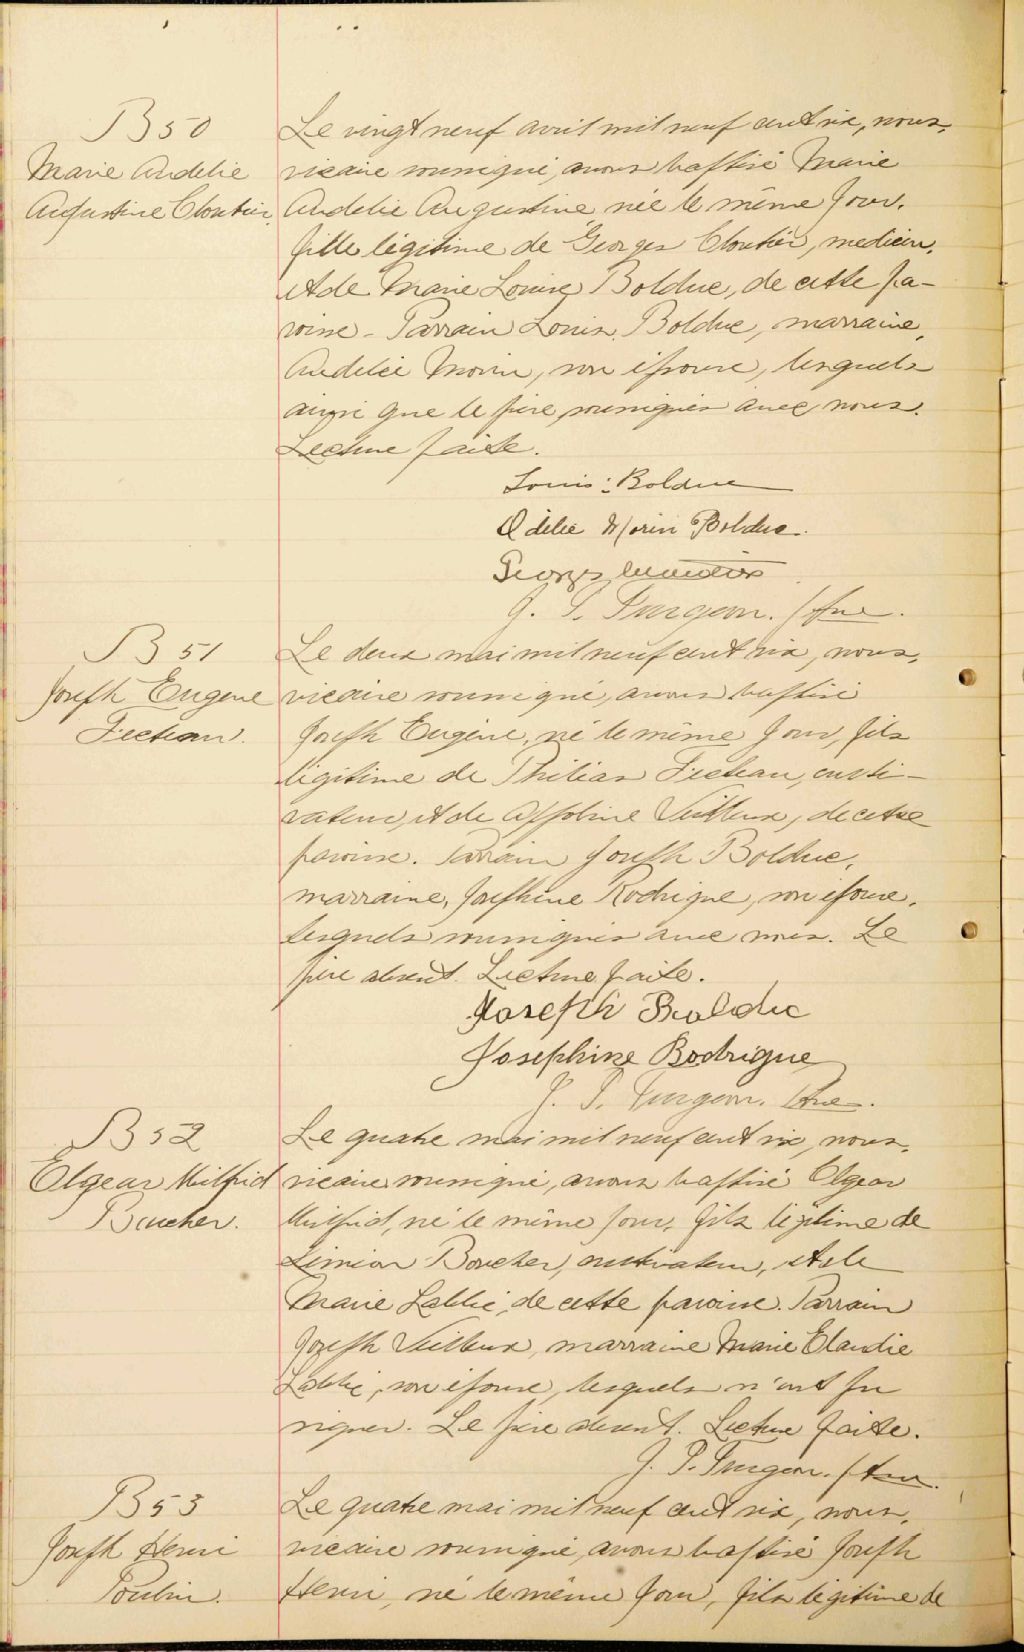 B 50
Marie Audelie
Augustine Cloutier
Le vingt neuf avril mil neuf cent six, nous,
vicaire soussigné, avons baptisé Marie
Audelie Augustine née le même jour,
fille légitime de Georges Cloutier, medicin,
et de Marie Louise Bolduc, de cette pa-
roisse - Parrain Louis Bolduc, marraine,
Audelie Morin, son épouse, lesquels
ainsi que le père soussignés avec nous.
Lecture faite.
Louis Bolduc
Odélie Morin Bolduc.
Georges Cloutier
J. P. Turgeon. Ptre.
B 51
Joseph Eugene
Fecteau.
Le deux mai mil neuf cent six, nous,
vicaire soussigné, avons baptisé
Joseph Eugène, né le même jour, fils
légitime de Philias Fecteau, culti-
vateur, et de Appoline Veilleux, de cette
paroisse. Parrain Joseph Bolduc,
marraine, Josephine Rodrigue, son épouse,
lesquels soussignés avec nous. Le
père absent. Lecture faite.
Joseph Bolduc
Josephine Rodrigue
J. P. Turgeon. Ptre.
B 52
Elgear Wilfrid
Boucher.
Le quatre mai mil neuf cent six, nous,
vicaire soussigné, avons baptisé Elgear
Wilfrid, né le même jour, fils légitime de
Siméon Boucher, cultivateur, et de
Marie Labbé, de cette paroisse. Parrain
Joseph Veilleux, marraine Marie Elaudie
Labbé, son épouse, lesquels n'ont pu
signer. Le père absent. Lecture faite.
J. P. Turgeon. Ptre.
B 53
Joseph Henri
Poulin.
Le quatre mai mil neuf cent six, nous,
vicaire soussigné, avons baptisé Joseph
Henri, né le même jour, fils légitime de